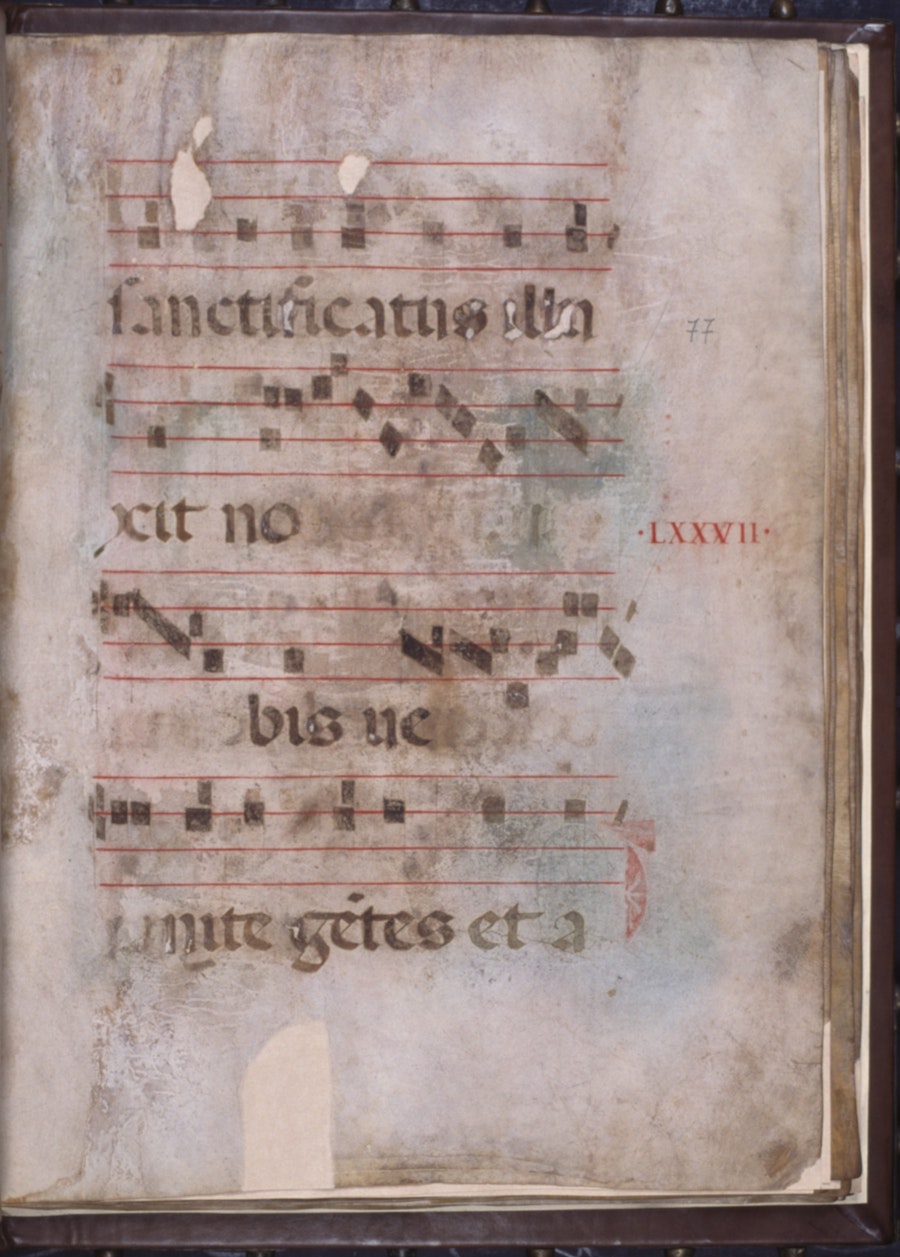 sanctificatus illu
77
xit no
·LXXXVII·
bis ue
nite gētes et a